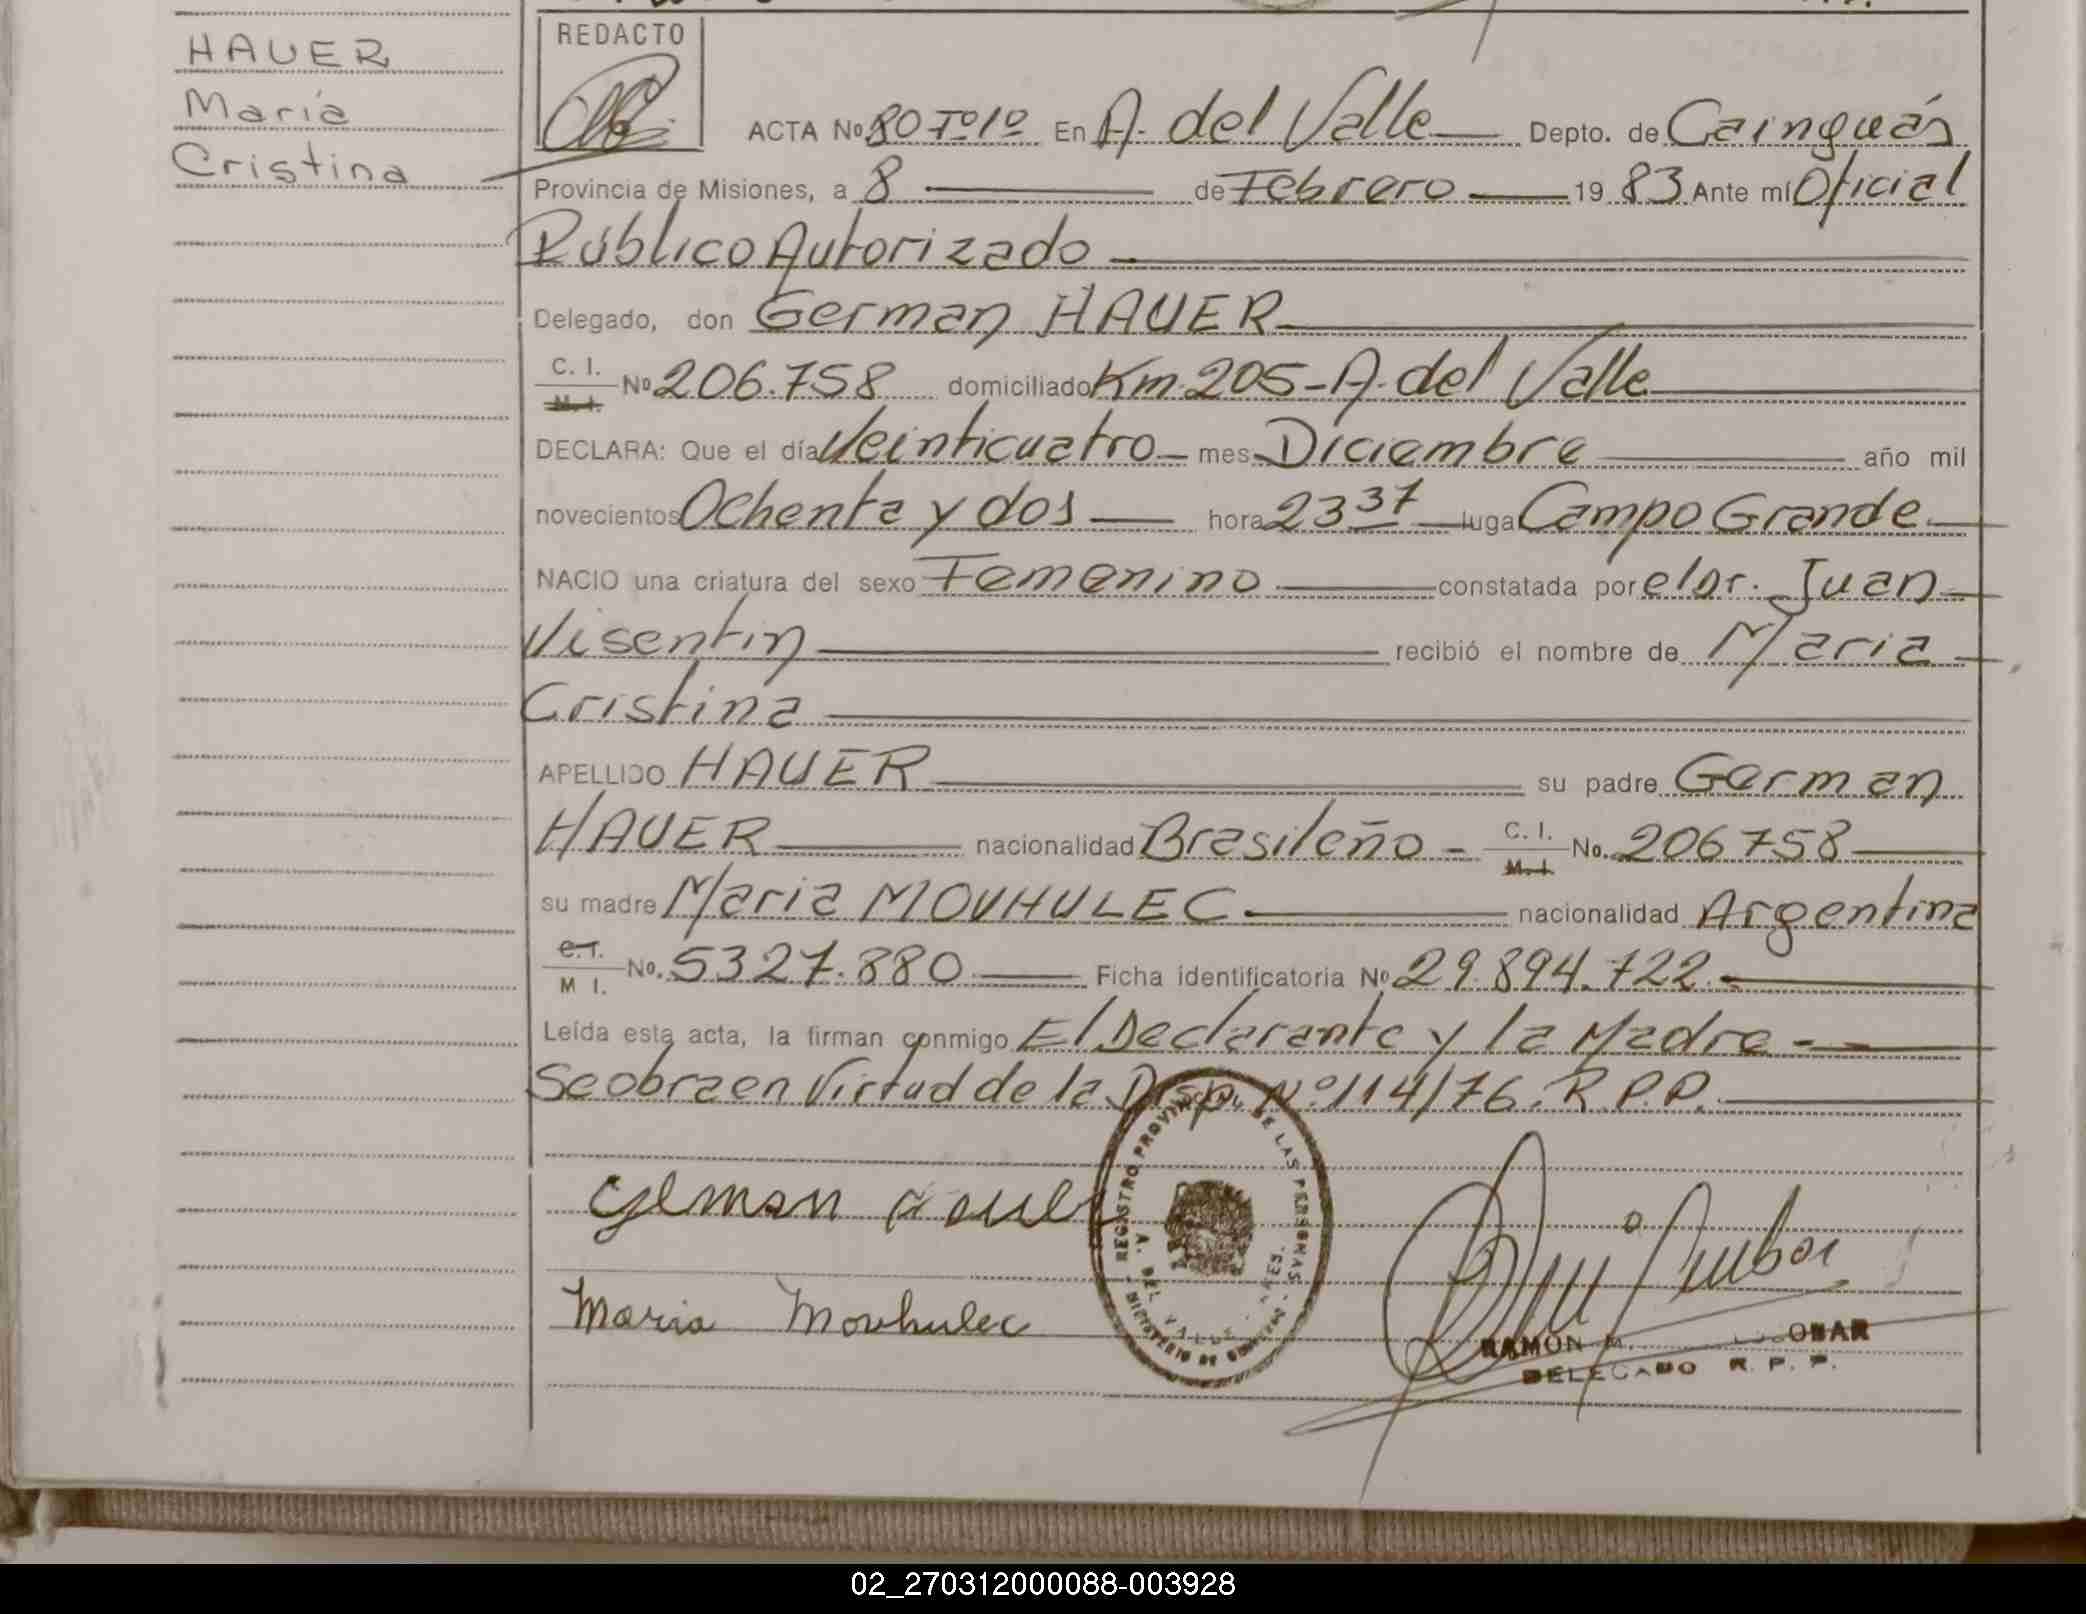 HAUER
María
Cristina
REDACTO
ACTA No 80 Tº1º En A. del Valle Depto. de Cainguás
Provincia de Misiones, a 8 de Febrero 19 83 Ante mí Oficial
Público Autorizado
Delegado, don German HAUER
C. I. M. I. Nº 206.758 domiciliado Km. 205 - A. del Valle
DECLARA: Que el día Veinticuatro mes Diciembre año mil
novecientos Ochenta y dos hora 23 37 luga Campo Grande
NACIO una criatura del sexo Femenino constatada por el Dr. Juan
Visentin recibió el nombre de Maria
Cristina
APELLIDO HAUER su padre German
HAUER nacionalidad Brasileño - C. I. M. I. No. 206758
su madre Maria MOUHULEC nacionalidad Argentina
C. I. M I. No. 5327.880 Ficha identificatoria Nº 29.894.722.
Leída esta acta, la firman conmigo El Declarante y la Madre -
Se obra en Virtud de la Disp. Nº 114/76. R.P.P.
German Hauer
Maria Mouhulec
REGISTRO PROVINCIAL DE LAS PERSONAS
A. DEL VALLE
MINISTERIO DE GOBIERNO
RAMON M.
DELEGADO R. P. P.
02_270312000088-003928